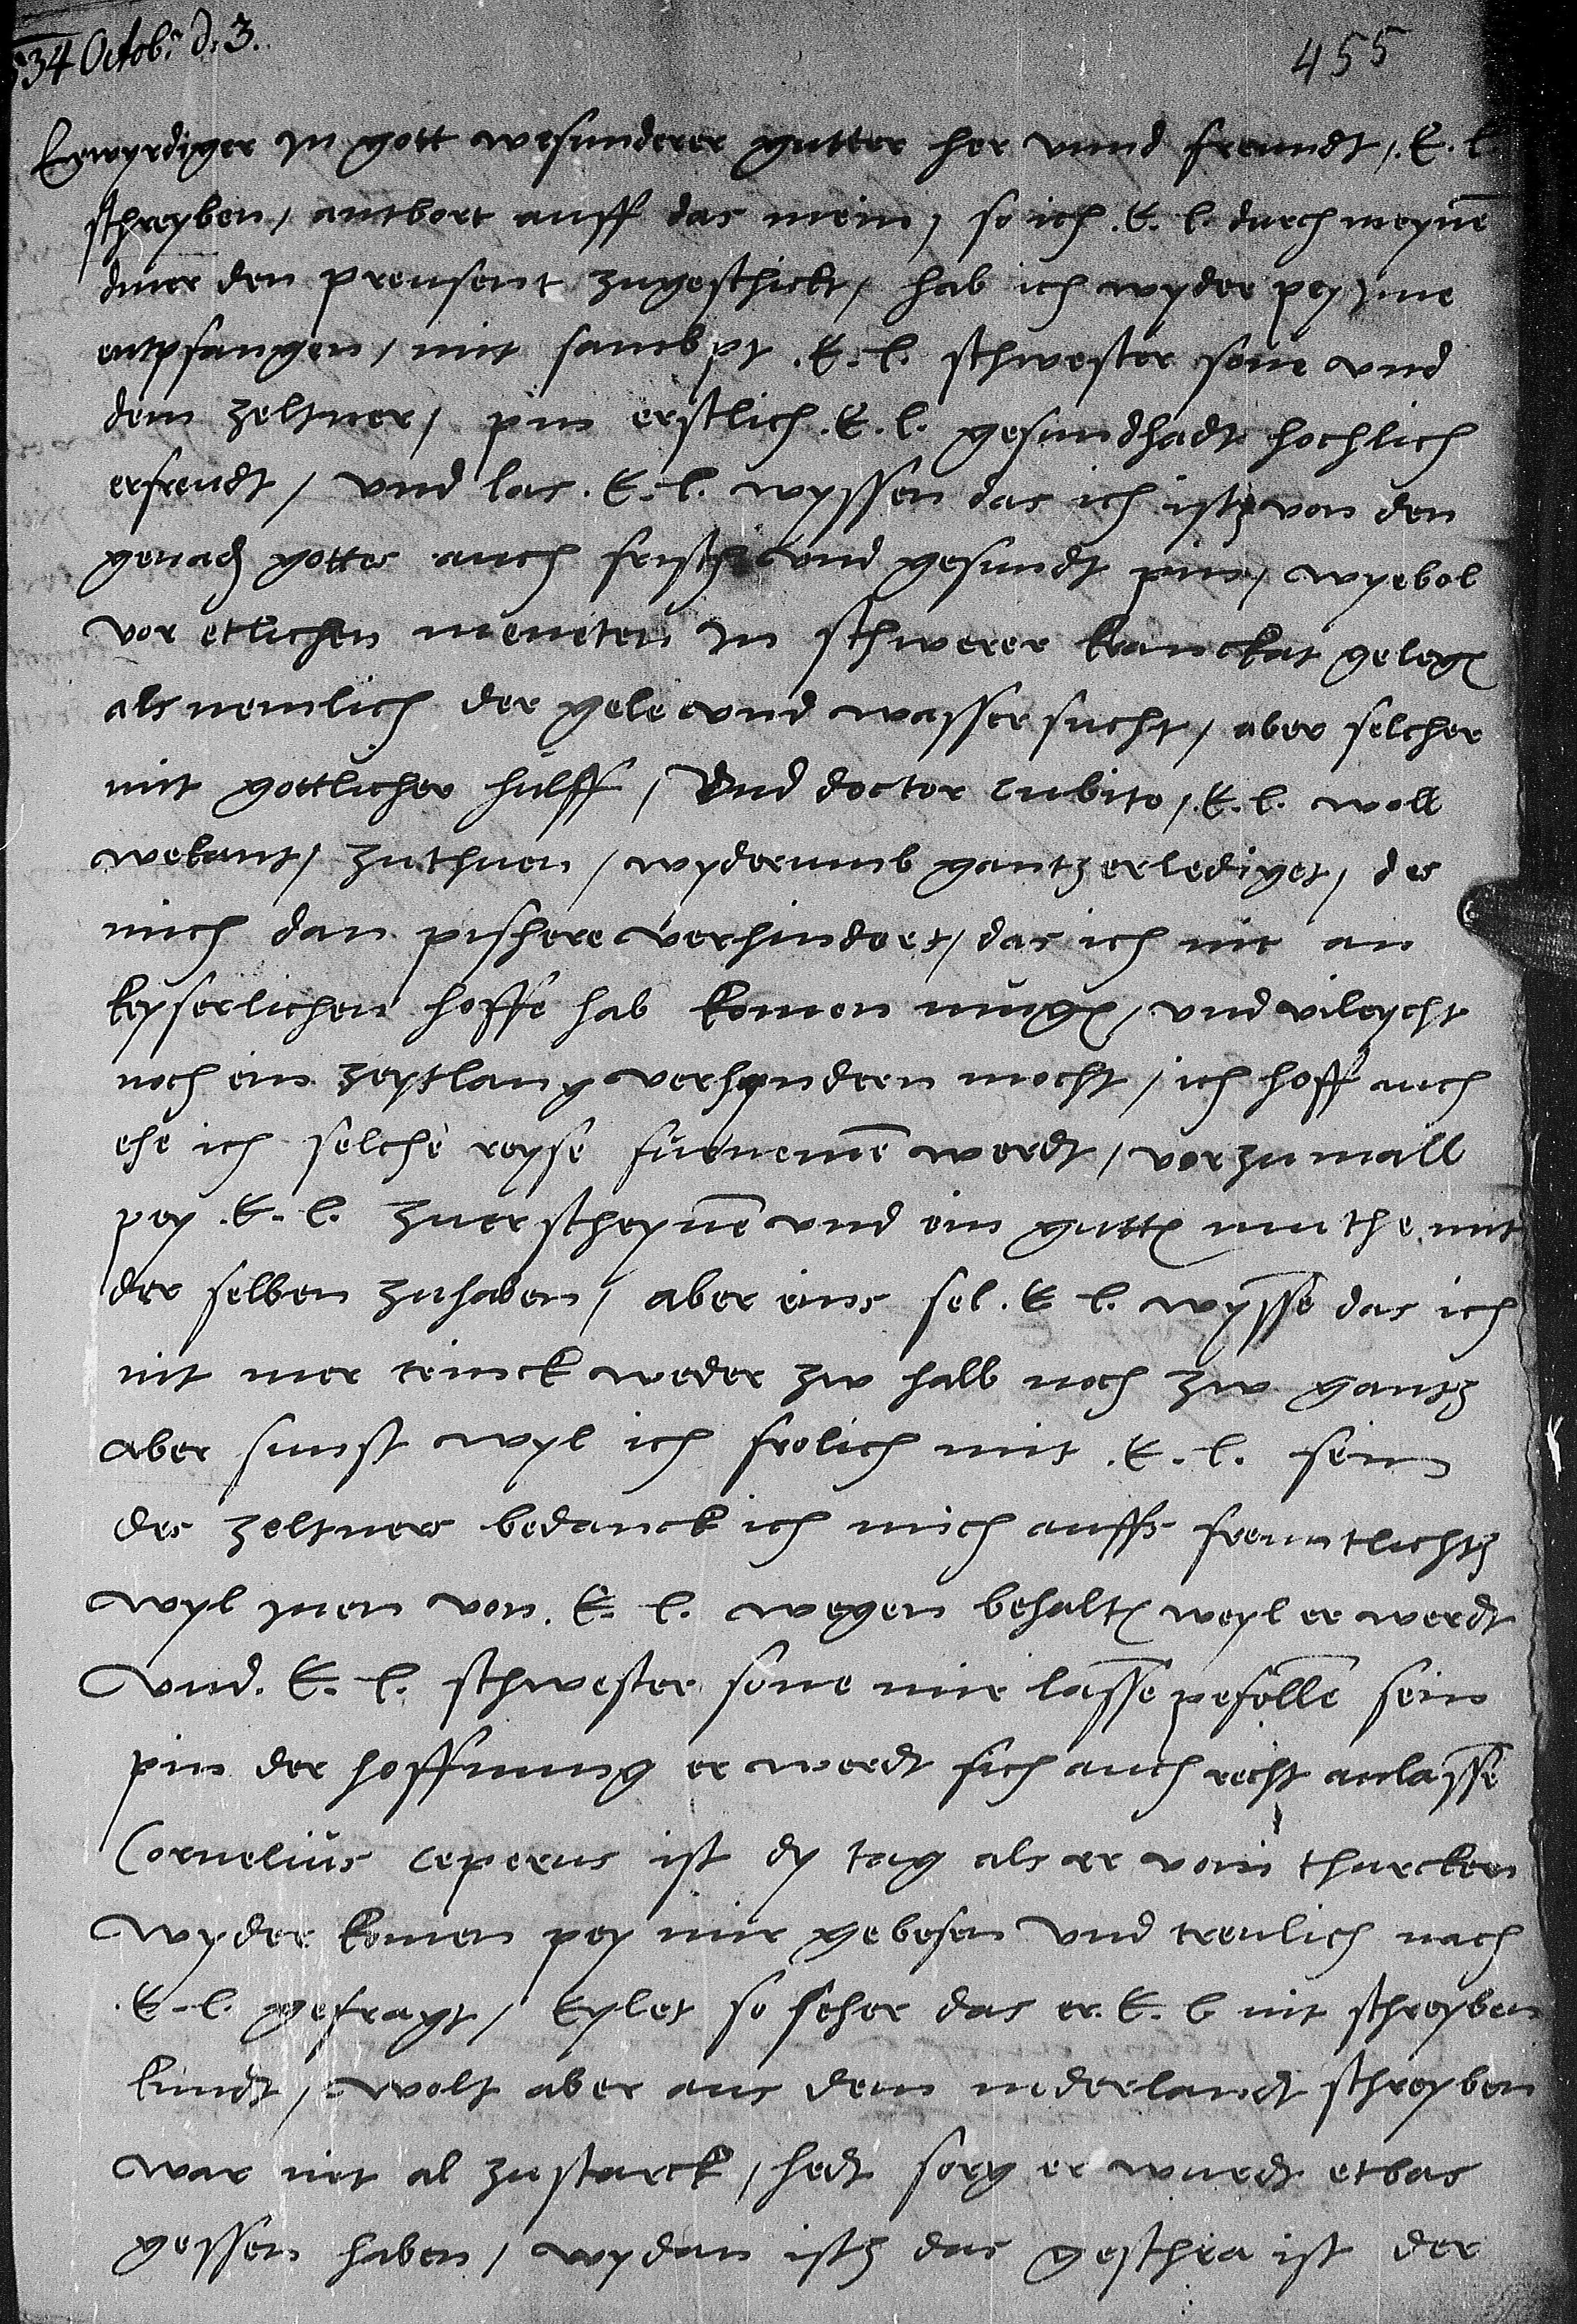 534 Octob: d. 3.
455
Erwyrdiger In gott wesunderer gutter her vnnd freundt, E. l.
schreyben, antbort auff das mein, so ich E. l. durch meyne
diner den preusent zugeschickt, hab ich wyder pey Ime
entpfangen, mit sambpt E. l. schwester sone vnd
dem zeltner, pin erstlich E. l. gesundhadt hochlich
erfreudt, vnd las E. l. wyssen das ich itz von den
genadn gottes auch frisch vnd gesundt pin, wyebol
vor etlichen moneten In schwerer kranckat gelegn
als nemlich der gele vnd wassersucht, aber selcher
mit gottlicher hülff, Vnd doctor Cubito, E. l. woll
wekant, zuthuen, wyderumb gantz erlediget, des
mich dan pishere verhindert, das ich nit an
keyserlichen hoffe hab komen mugn, vnd vileycht
noch ein zeytlang verhyndern mocht, ich hoff auch
ehe ich selche reyse fürneme werdt, vor zumall
pey E. l. zuerscheyne vnd ein guttn muthe mit
der selben zuhaben, aber eins sol E. l. wysse das ich
nit mer trinck weder zw halb noch zw gantz
aber sunst wyl ich frolich mit E. l. sein
des zeltners bedanck ich mich auffs freuntlichst
wyl Inen von E. l. wegen behaltn weyl er werdt
Vnd E. l. schwester sone mir lasse pefolle sein
pin der hoffnung er werdt sich auch recht anlasse
Cornelius ceperus ist dy tag als er vom thurcken
wyder komen pey mir gebesen vnd treulich nach
E. l. gefragt, Eylet so seher das er E. l. nit schreyben
kundt, wolt aber aus dem niderlandt schreyben
war nit al zustarck, hedt sorg er wurdt etbas
gessen haben, wydan itz das geschra ist der